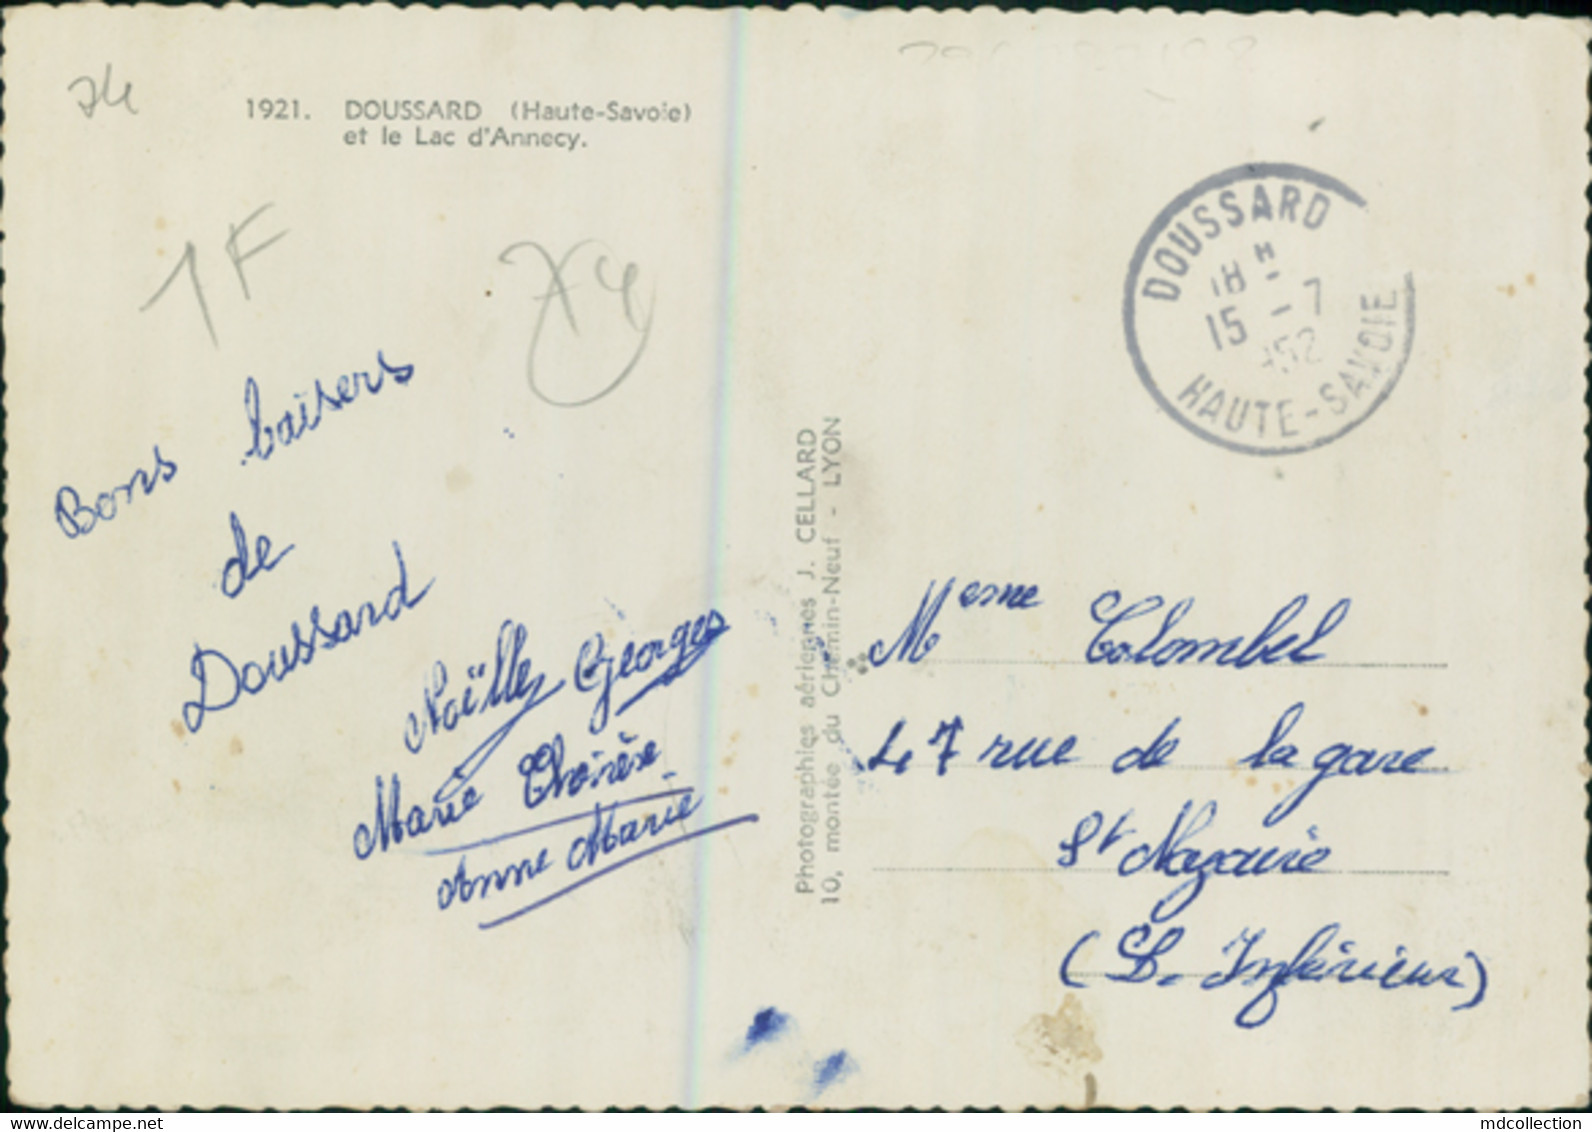 74
1921. DOUSSARD (Haute-Savoie)
et le Lac d'Annecy.
1F
74
Bons baisers
de
Doussard
Noëlle Georges
Marie Thérèse
Anne Marie
Photographies aériennes J. CELLARD
10, montée du Chemin-Neuf - LYON
DOUSSARD
18 H
15 - 7
952
HAUTE-SAVOIE
Meme Colombel
47 rue de la gare
St Nazaire
(L. Inférieur)
www.delcampe.net
mdcollection